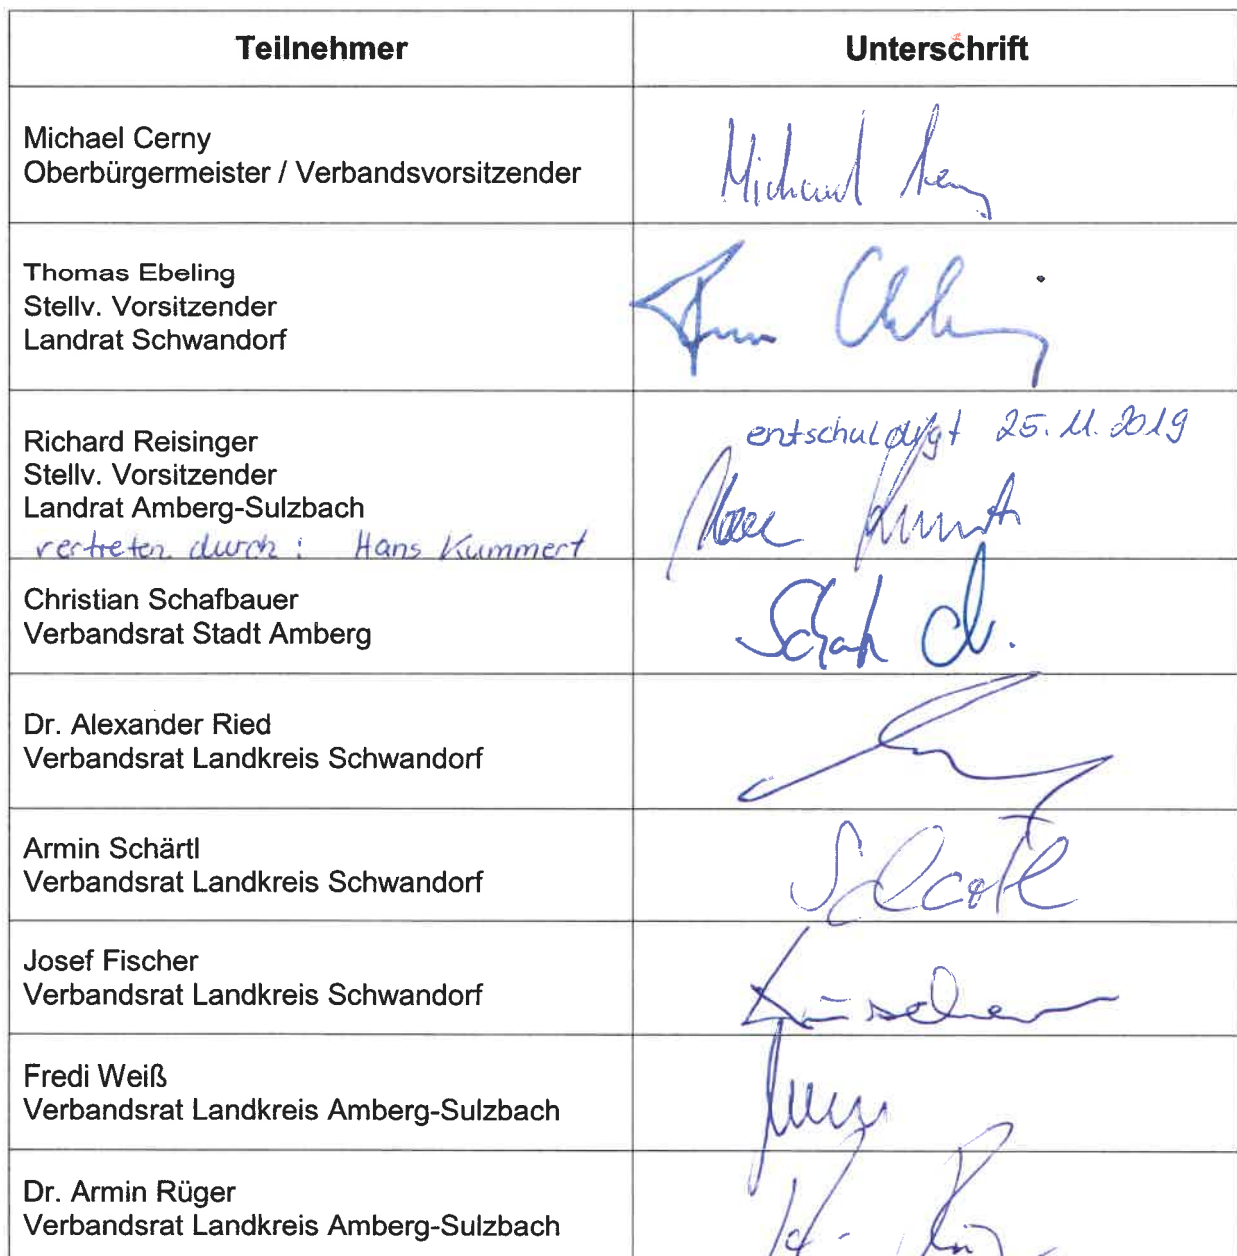 Teilnehmer
Unterschrift
Michael Cerny
Oberbürgermeister / Verbandsvorsitzender
Michael Cerny
Thomas Ebeling
Stellv. Vorsitzender
Landrat Schwandorf
Richard Reisinger
Stellv. Vorsitzender
Landrat Amberg-Sulzbach
vertreten durch: Hans Kummert
entschuldigt 25.11.2019
Christian Schafbauer
Verbandsrat Stadt Amberg
Dr. Alexander Ried
Verbandsrat Landkreis Schwandorf
Armin Schärtl
Verbandsrat Landkreis Schwandorf
Josef Fischer
Verbandsrat Landkreis Schwandorf
Fredi Weiß
Verbandsrat Landkreis Amberg-Sulzbach
Dr. Armin Rüger
Verbandsrat Landkreis Amberg-Sulzbach